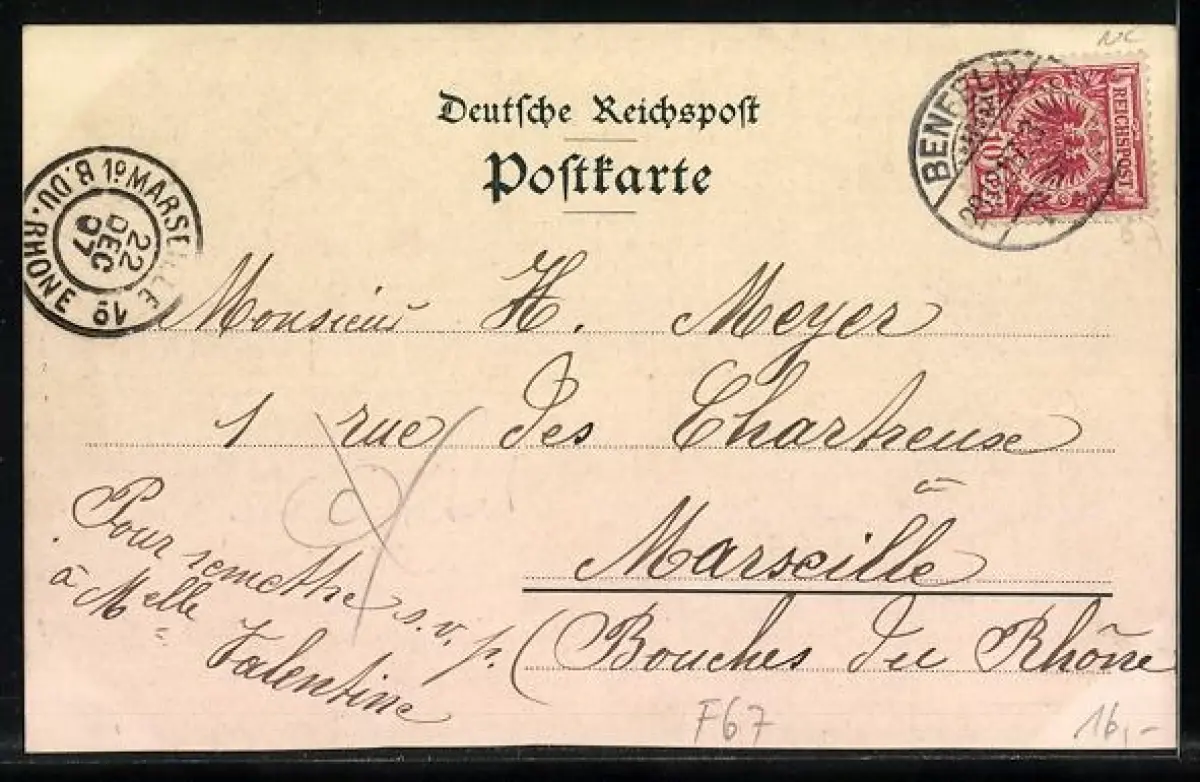 Deutsche Reichspost
Postkarte
BENFELD
REICHSPOST
10
1º MARSEILLE 1º
B. DU-RHONE
22
DEC
97
Monsieur H. Meyer
1 rue des Chartreuse
à
Marseille
(Bouches du Rhône
Pour remettre s.v.p.
à Melle Valentine
F67
16,-